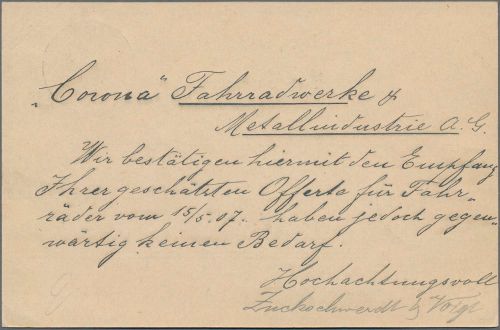 „Corona" Fahrradwerke &
Metallindustrie A.G.
Wir bestätigen hiermit den Empfang
Ihrer geschätzten Offerte für Fahr-
räder vom 15/5.07. haben jedoch gegen-
wärtig keinen Bedarf.
Hochachtungsvoll
Zuckschwerdt & Voigt